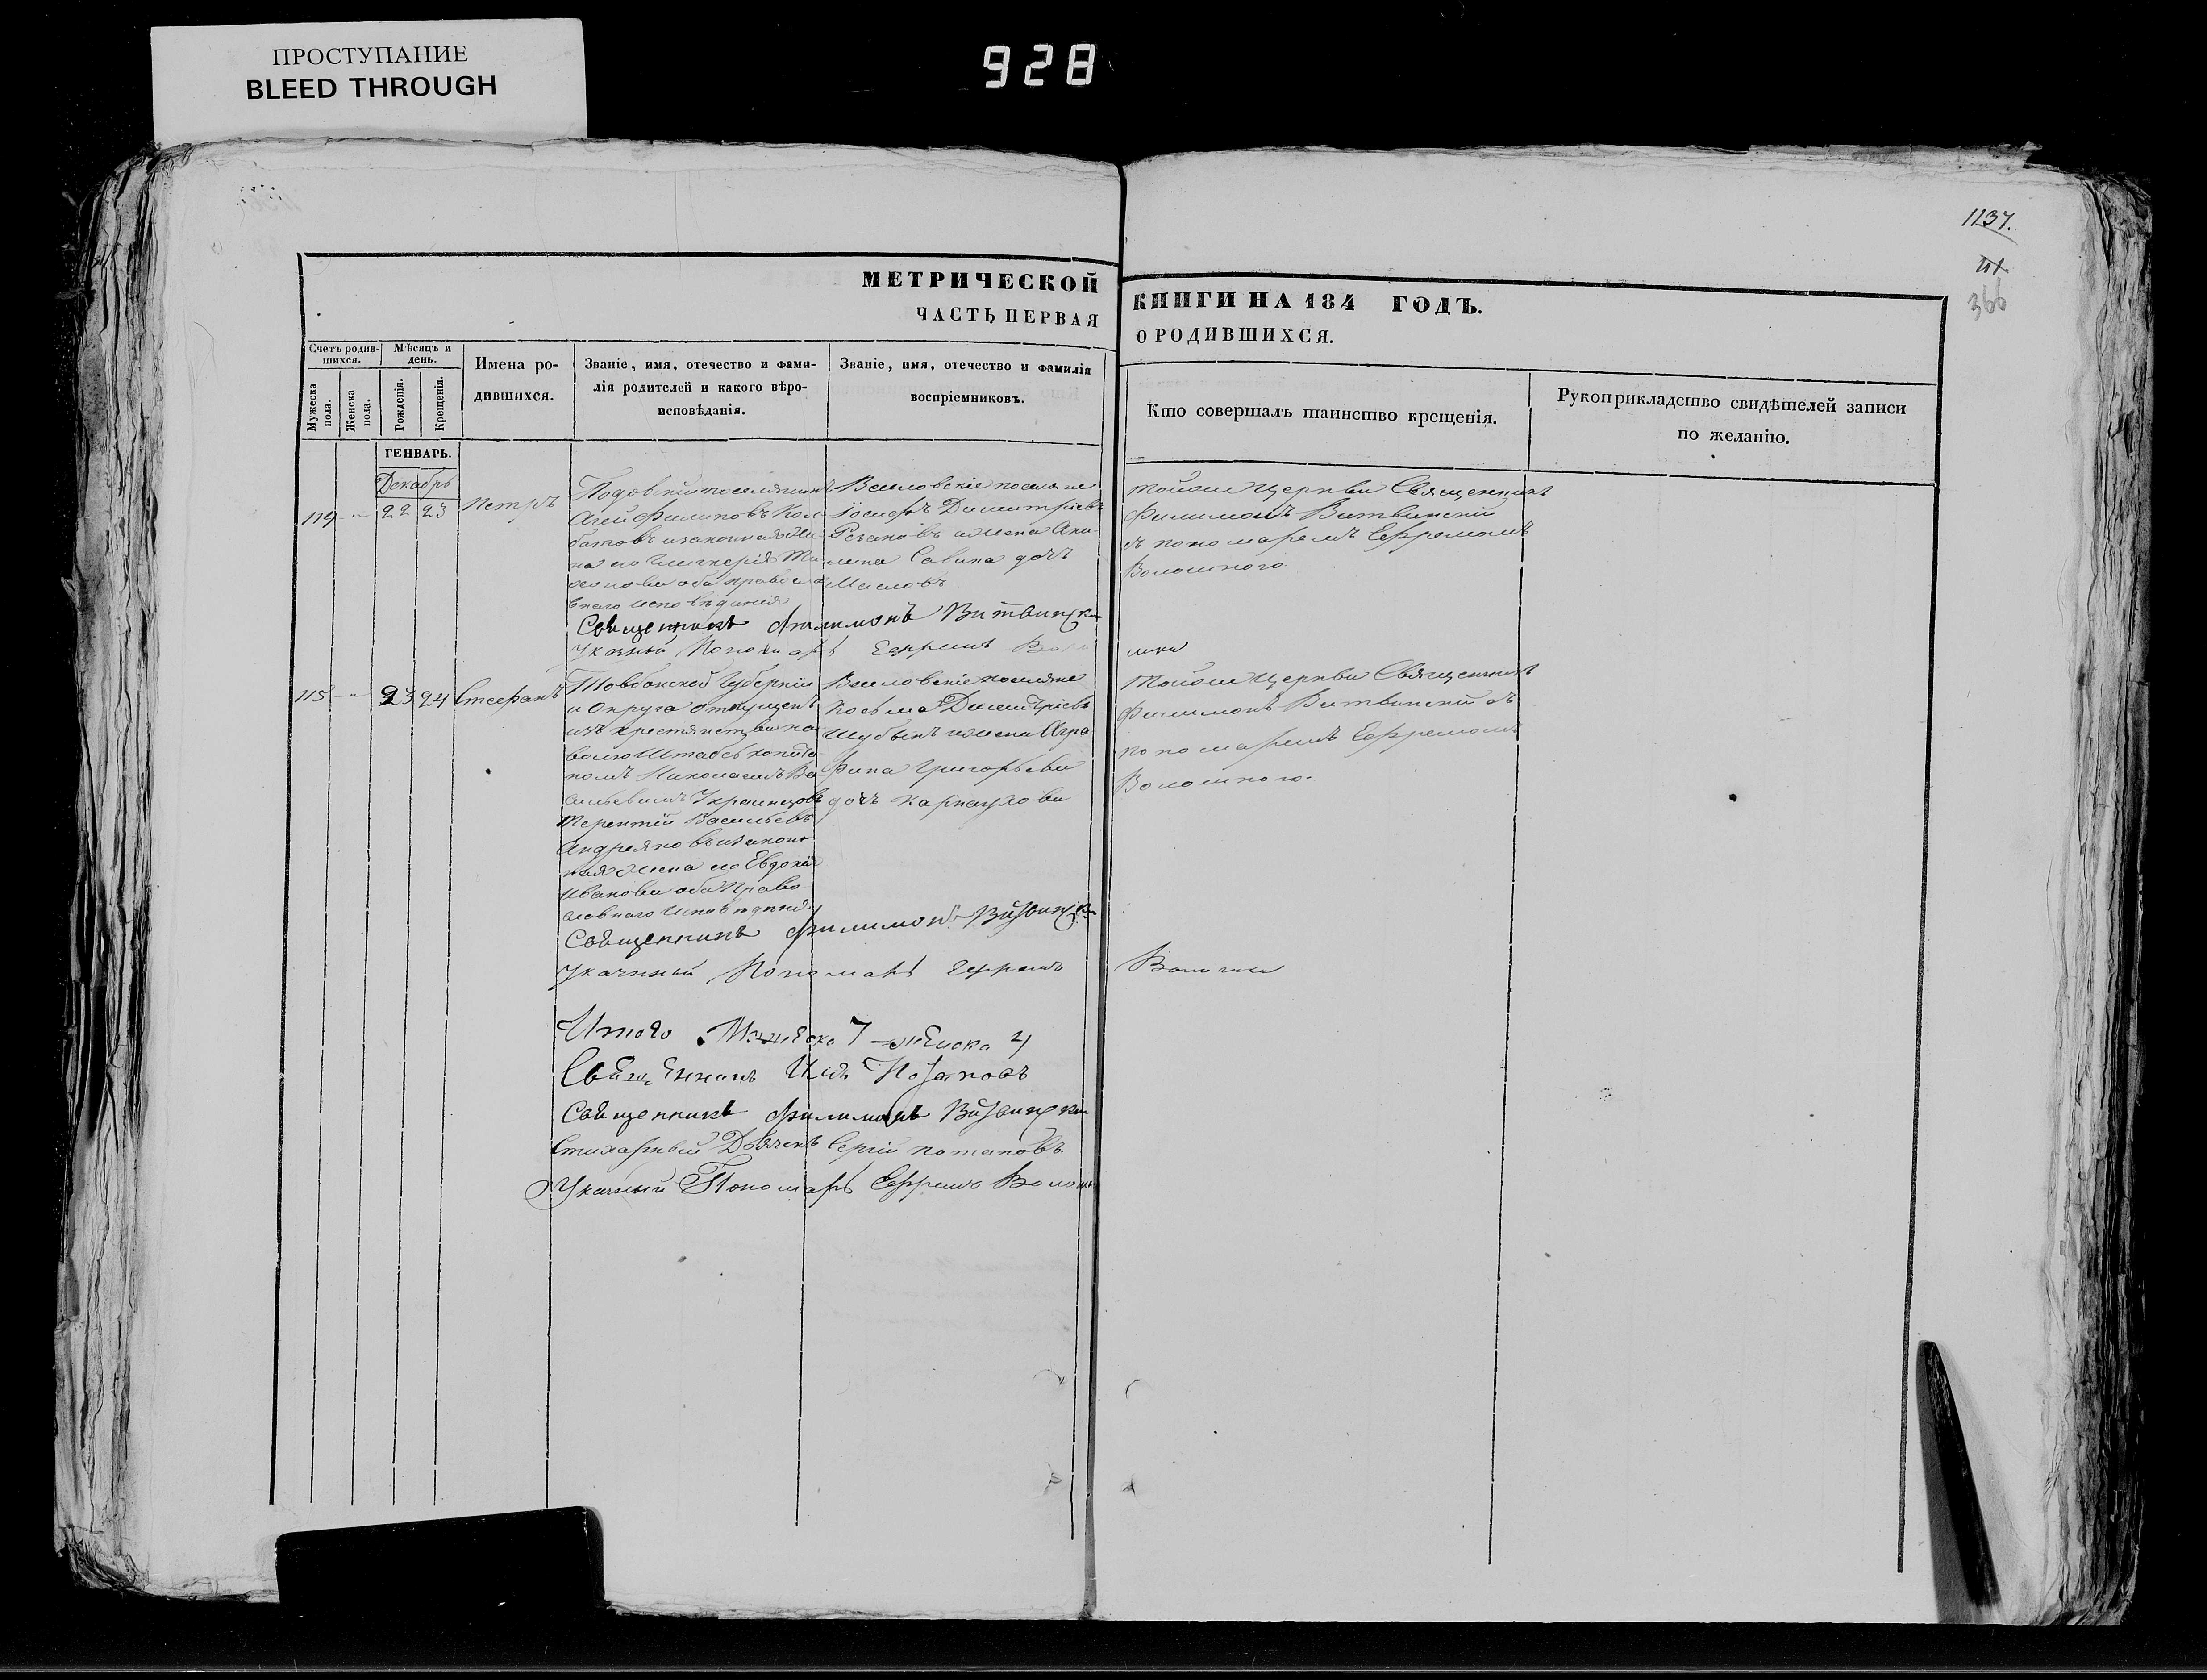 ПРОСТУПАНИЕ
BLEED THROUGH
928
1137.
41.
366
МЕТРИЧЕСКОЙ КНИГИ НА 184 ГОДЪ.
ЧАСТЬ ПЕРВАЯ О РОДИВШИХСЯ.
Счетъ родив-
шихся.
Мужеска пола.
Женска пола.
Мѣсяцъ и
день.
Рожденія.
Крещенія.
Имена ро-
дившихся.
Званіе, имя, отечество и фами-
лія родителей и какого вѣро-
исповѣданія.
Званіе, имя, отечество и фамилія
воспріемниковъ.
Кто совершалъ таинство крещенія.
Рукоприкладство свидѣтелей записи
по желанію.
ГЕНВАРЬ.
Декабрь
114 - " 22 23 Петръ
поселянинъ
Филиповъ Кол
батовъ изаконная Же
на его Гликерія Ти
оба правосла
внаго исповѣданія
поселяне
Іосифъ Димитріевъ
Рѣзановъ ижена Аки
лина Савина дочь
Маслова
тойже Церкви Священникъ
Филимонъ Витвинскій
съ пономаремъ Ефремомъ
Волошкого
Священникъ Филимонъ Витвинскій
Указный Пономарь Ефремъ Волошка
115 - " 23 24 Стефанъ
Губерніи
и Округа отпущенъ
изъ крестьянства на
волю Штабсъ капита
номъ Николаемъ Ва
сильевымъ Украинцовъ
Терентій Васильевъ
Андреяновъ изакон
ная жена его Евдокія
Иванова оба Право
славнаго исповѣданія.
поселяне
Косьма Димитріевъ
Шубинъ ижена Агра
фина Григорьева
дочь Карнаухова
Тойже Церкви Священникъ
Филимонъ Витвинскій съ
пономаремъ Ефремомъ
Волошкого.
Священникъ Филимонъ Витвинскій
Указный Пономарь Ефремъ Волошка
Итого Мужеска 7 женска 4
Священникъ
Священникъ Филимонъ Витвинскій
Стихарный Дьячекъ Сергій Потаповъ
Указный Пономарь Ефремъ Волошка